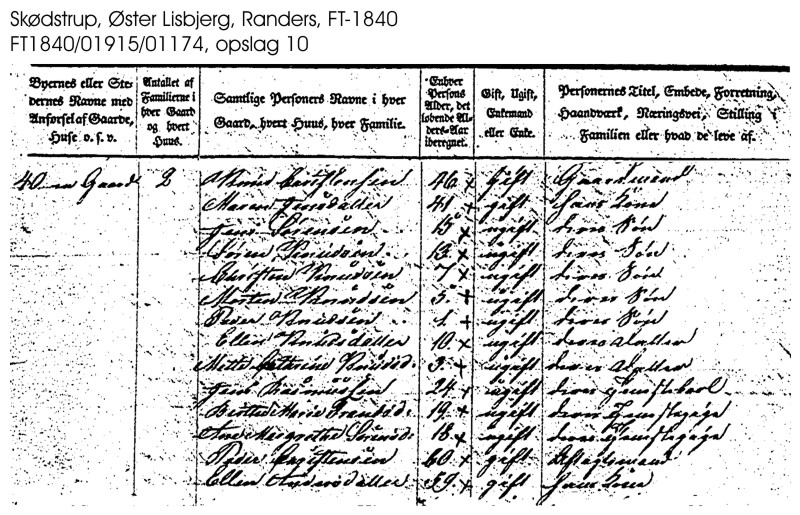 Skødstrup, Øster Lisbjerg, Randers, FT-1840
FT1840/01915/01174, opslag 10
Byernes eller Ste-
dernes Navne med
Anførsel af Gaarde,
Huse o. s. v.
Antallet af
Familierne i
hver Gaard
og hvert
Huus.
Samtlige Personers Navne i hver
Gaard, hvert Huus, hver Familie.
Enhver
Persons
Alder, det
løbende Al-
ders-Aar
iberegnet.
Gift, Ugift,
Enkemand
eller Enke.
Personernes Titel, Embede, Forretning,
Haandværk, Næringsvei, Stilling i
Familien eller hvad de leve af.
40 en Gaard 2 Knud Christensen 46 × gift Gaardmand
Maren Jensdatter 41 × gift hans Kone
Jens Sørensen 15 × ugift deres Søn
Søren Knudsen 13 × ugift deres Søn
Christen Knudsen 7 × ugift deres Søn
Morten Knudsen 5 + ugift deres Søn
Peder Knudsen 1 + ugift deres Søn
Ellen Knudsdatter 10 × ugift deres Datter
Mette Cathrine Knudsd: 3 × ugift deres Datter
Rasmussen 24 + ugift deres Tjenestekarl
Birthe Marie Frandsd: 19 + ugift deres Tjenestepige
Ane Margrethe Sørensd: 18 × ugift deres Tjenestepige
Peder Christensen 60 × gift Aftægtsmand
Ellen Andersdatter 59 × gift hans Kone